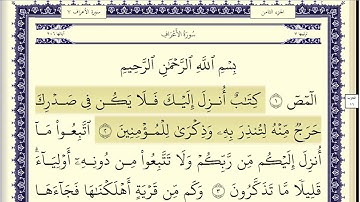 سورة الأعراف ٧ الجزء الثامن
سُورَةُ الأَعْرَافِ
بِسْمِ ٱللَّهِ ٱلرَّحْمَٰنِ ٱلرَّحِيمِ
الٓمٓصٓ ١ كِتَٰبٌ أُنزِلَ إِلَيْكَ فَلَا يَكُن فِي صَدْرِكَ
حَرَجٌ مِّنْهُ لِتُنذِرَ بِهِۦ وَذِكْرَىٰ لِلْمُؤْمِنِينَ ٢ ٱتَّبِعُوا۟ مَآ
أُنزِلَ إِلَيْكُم مِّن رَّبِّكُمْ وَلَا تَتَّبِعُوا۟ مِن دُونِهِۦٓ أَوْلِيَآءَ ۗ
قَلِيلًا مَّا تَذَكَّرُونَ ٣ وَكَم مِّن قَرْيَةٍ أَهْلَكْنَٰهَا فَجَآءَهَا